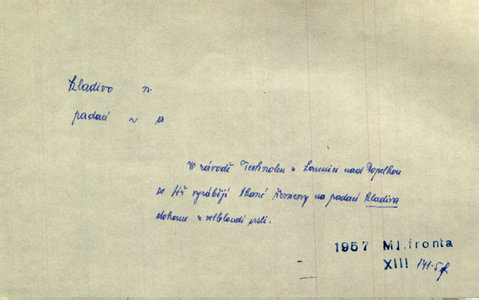 Kladivo n.
padací ~ a
V závodě Technolen v Lomnici nad Popelkou
se též vyrábějí tkané řemeny na padací kladiva
dokonce z velbloudí srsti.
1957 Ml. fronta
XIII 141.5